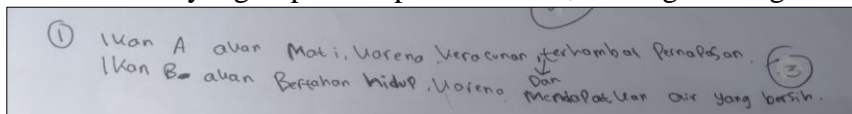 ① Ikan A akan Mati, karena keracunan, terhambat Pernapasan. ③
Dan
Ikan B akan Bertahan hidup, karena Mendapatkan air yang bersih.